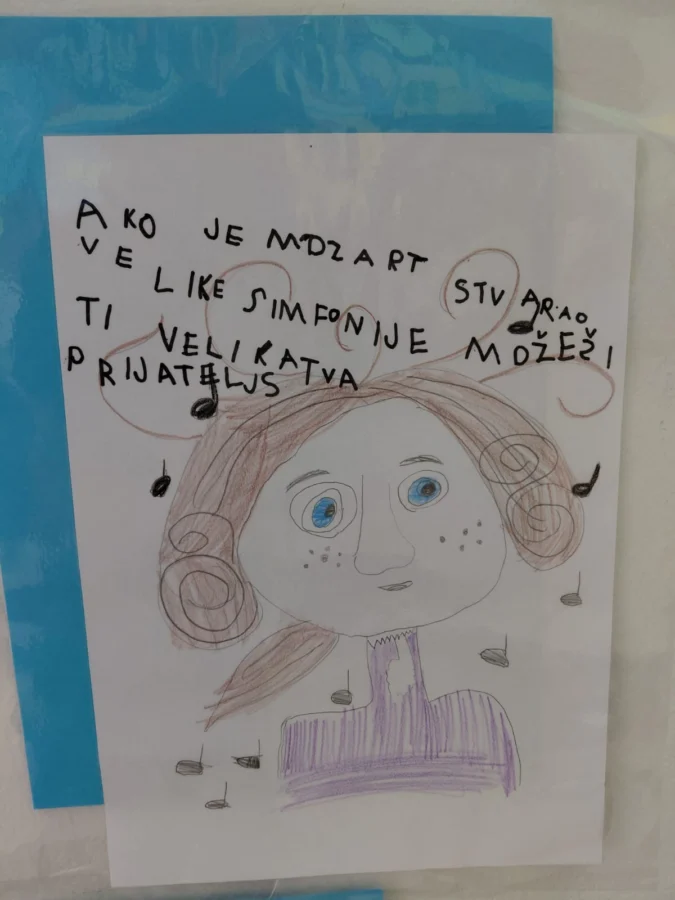 AKO JE MOZART STVARAO
VELIKE SIMFONIJE MOŽEŠ I
TI VELIKA
PRIJATELJSTVA